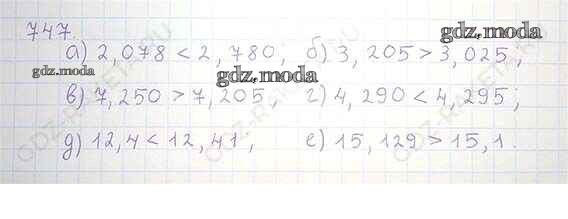 gdz.moda
747.
а) 2,078 < 2,780; б) 3,205 > 3,025;
gdz.moda gdz.moda
в) 7,250 > 7,205. г) 4,290 < 4,295;
д) 12,4 < 12,41, е) 15,129 > 15,1.